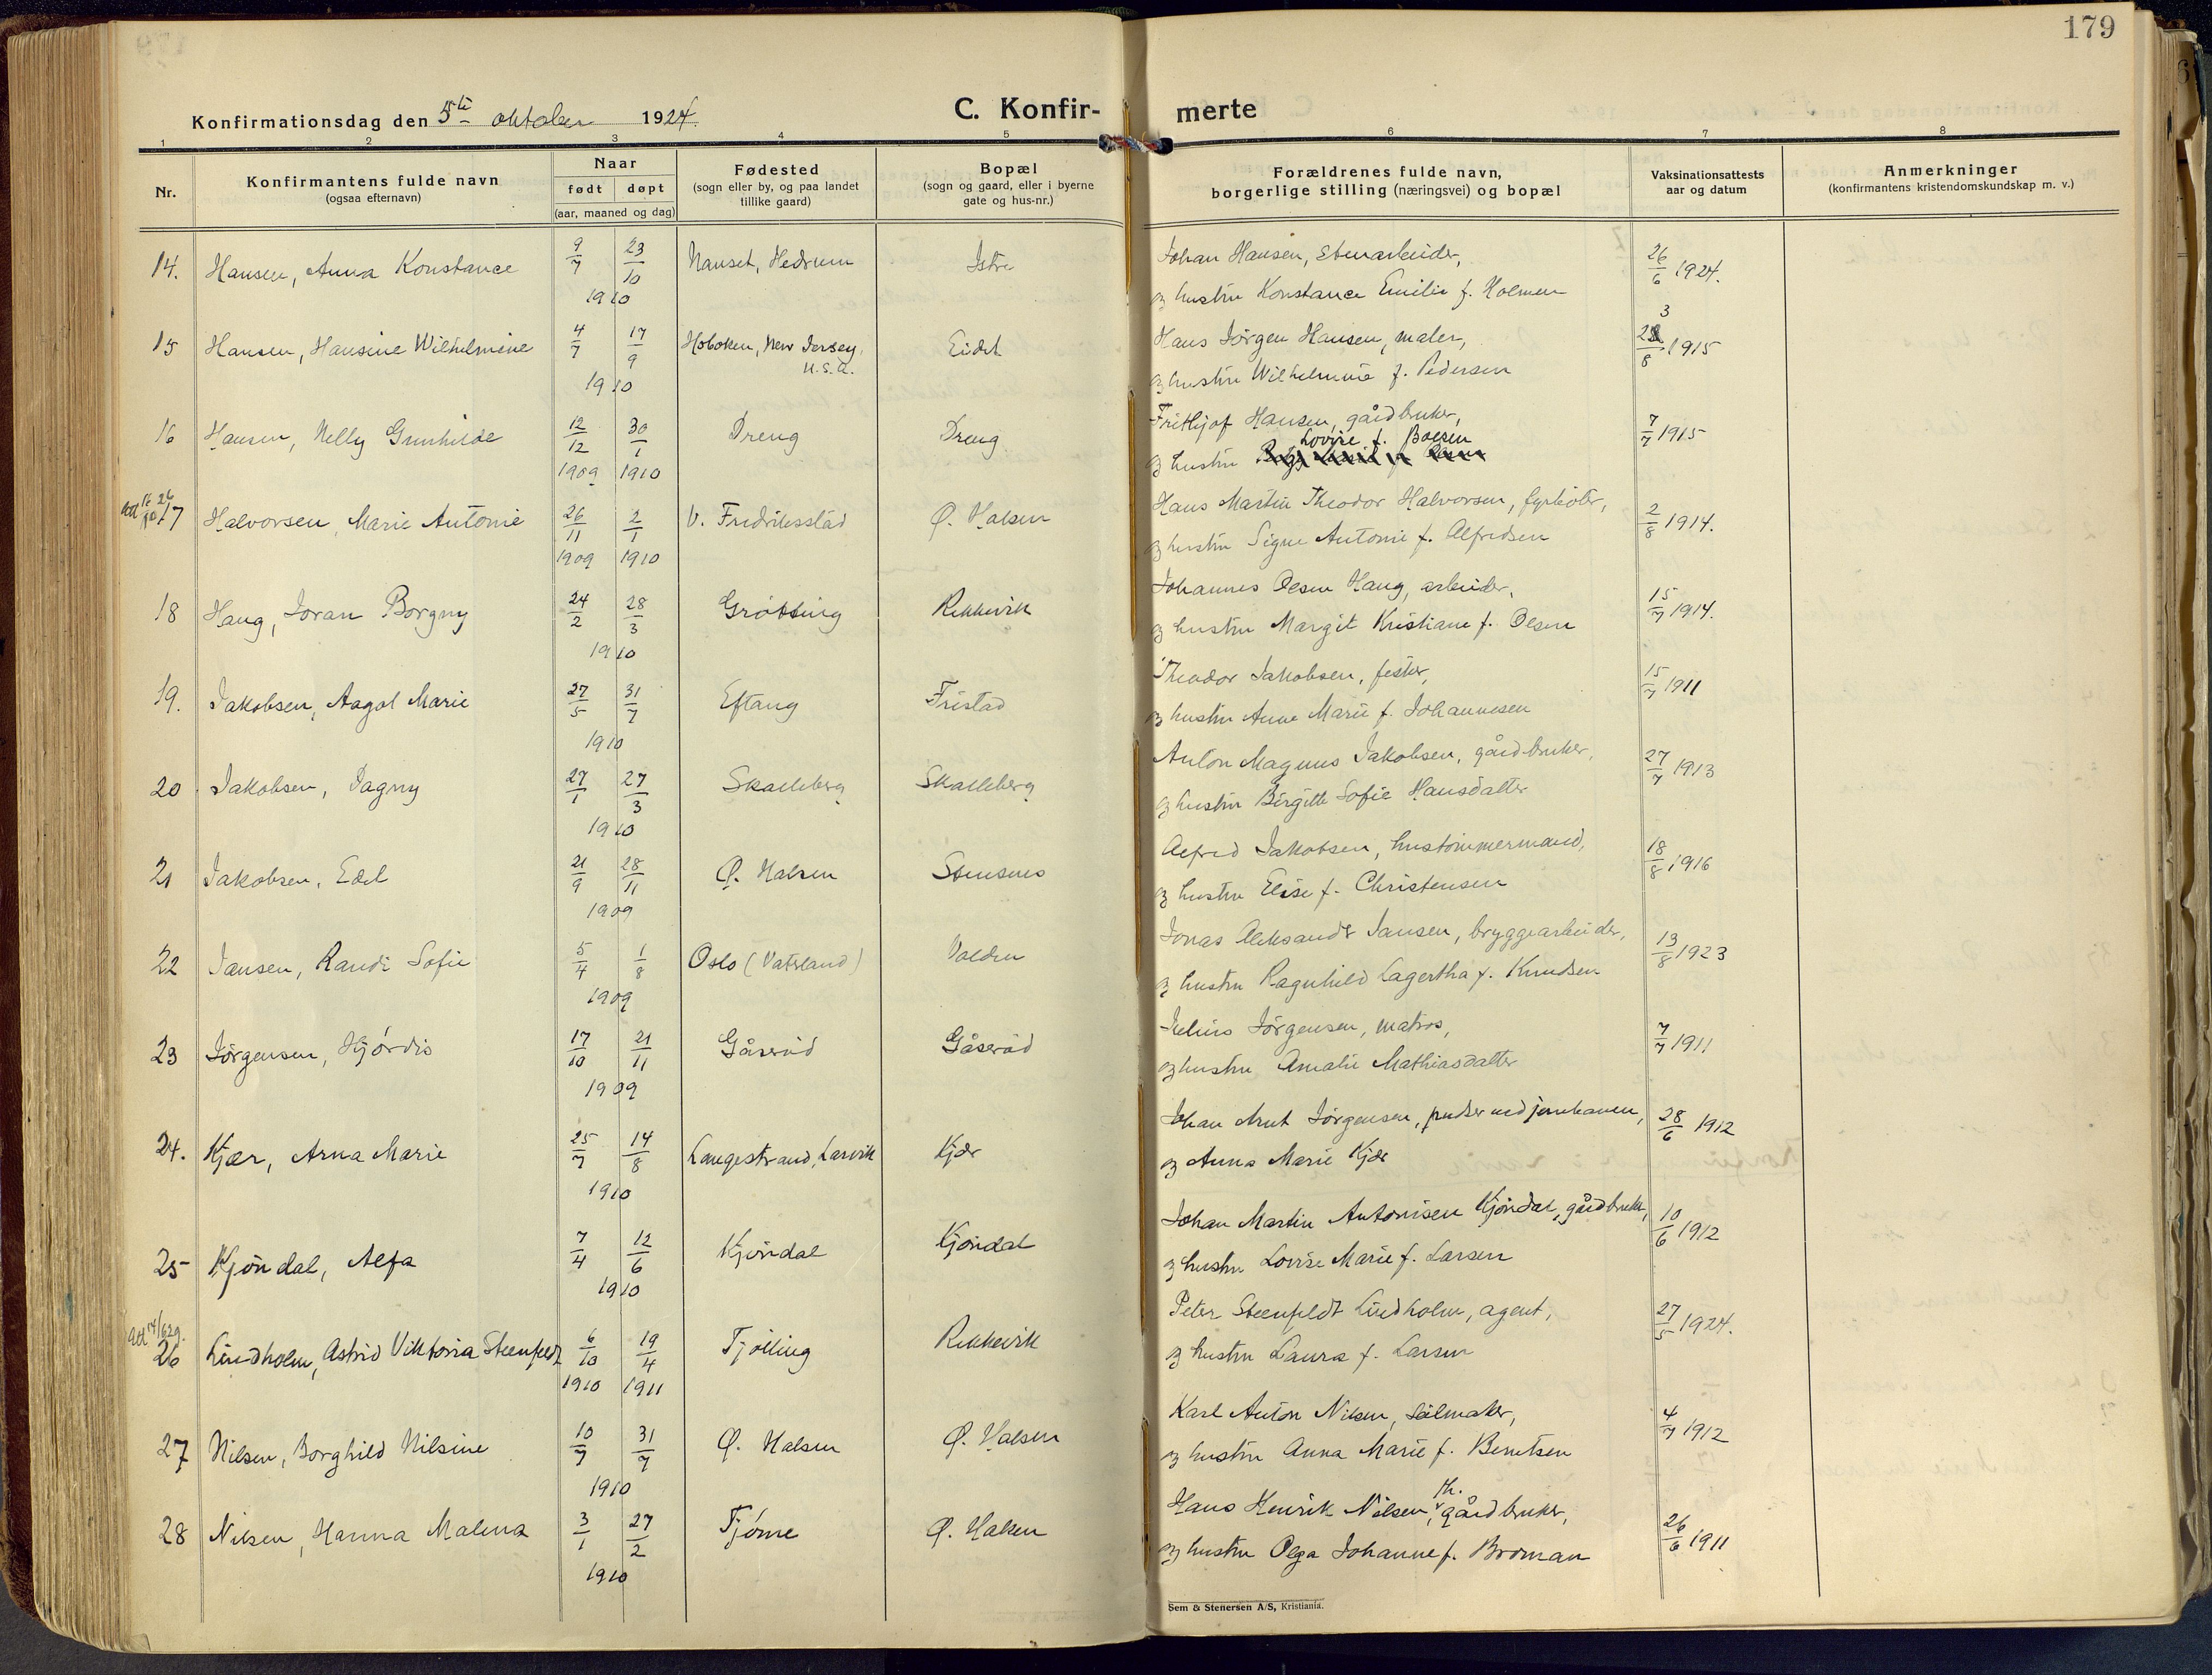 179
Konfirmationsdag den 5te oktober 1924.
C. Konfirmerte
1 2 3 4 5 6 7 8
Nr.
Konfirmantens fulde navn
(ogsaa efternavn)
Naar
født døpt
(aar, maaned og dag)
Fødested
(sogn eller by, og paa landet
tillike gaard)
Bopæl
(sogn og gaard, eller i byerne
gate og hus-nr.)
Forældrenes fulde navn,
borgerlige stilling (næringsvei) og bopæl
Vaksinationsattests
aar og datum
Anmerkninger
(konfirmantens kristendomskundskap m. v.)
14. Hansen, Anna Konstance 9/7 23/10 1910 Nanset, Hedrum Istre
Johan Hansen, stenarbeider, 26/6 1924.
og hustru Konstance Emilie f. Holmen
15 Hansen, Hansine Wilhelmine 4/7 17/9 1910 Hoboken, New Jersey, U.S.A. Eidet
Hans Jörgen Hansen, maler, 23/8 1915
og hustru Wilhelmine f. Pedersen
16 Hansen, Nelly Gunhilde 12/12 1909 30/1 1910 Dreng Dreng
Frithjof Hansen, gårdbruker, 7/7 1915
og hustru Lovise f. Boesen
Att 16/10 26
17 Halvorsen, Marie Antonie 26/11 1909 2/1 1910 V. Fredriksstad Ø. Halsen
Hans Martin Theodor Halvorsen, fyrböter, 2/8 1914.
og hustru Signe Antonie f. Alfredsen
18 Haug, Joran Borgny 24/2 28/3 1910 Grötting Rekkevik
Johannes Olsen Haug, arbeider, 15/7 1914.
og hustru Margit Kristiane f. Olsen
19. Jakobsen, Aagot Marie 27/5 31/7 1910 Eftang Fristad
Theodor Jakobsen, fisker, 15/7 1911
og hustru Anne Marie f. Johannesen
20 Jakobsen, Dagny 27/1 27/3 1910 Skalleberg Skalleberg
Anton Magnus Jakobsen, gårdbruker, 27/7 1913
og hustru Birgitte Sofie Hansdatter
21 Jakobsen, Edel 21/9 28/11 1909 Ø. Halsen Stensnes
Alfred Jakobsen, hustömmermand, 18/8 1916
og hustru Elise f. Christensen
22 Jansen, Randi Sofie 5/4 1/8 1909 Oslo (Vatsland) Valden
Jonas Aleksandr Jansen, bryggearbeider, 13/8 1923
og hustru Ragnhild Lagertha f. Knudsen
23 Jörgensen, Hjördis 17/10 21/11 1909 Gåseröd Gåseröd
Julius Jörgensen, matros, 7/7 1911
og hustru Amalie Mathiasdatter
24. Kjær, Arna Marie 25/7 14/8 1910 Langestrand, Larvik Kjær
Johan Arnt Jörgensen, pudser ved jernbanen, 28/6 1912
og Anna Marie Kjær
25 Kjöndal, Alfa 7/4 12/6 1910 Kjöndal Kjöndal
Johan Martin Antonisen Kjöndal, gårdbruker, 10/6 1912
og hustru Lovise Marie f. Larsen
Att 14/6 29.
26 Lindholm, Astrid Viktoria Steenfeldt 6/10 1910 19/4 1911 Tjölling Rekkevik
Peter Steenfeldt Lindholm, agent, 27/5 1924.
og hustru Laura f. Larsen
27 Nilsen, Borghild Nilsine 10/7 31/7 1910 Ø. Halsen Ø. Halsen
Karl Anton Nilsen, seilmaker, 4/7 1912
og hustru Anna Marie f. Berntsen
28 Nilsen, Hanna Malena 3/1 27/2 1910 Tjöme Ø. Halsen
Hans Henrik Nilsen, fh. gårdbruker, 26/6 1911
og hustru Olga Johanne f. Broman
Sem & Stenersen A/S, Kristiania.